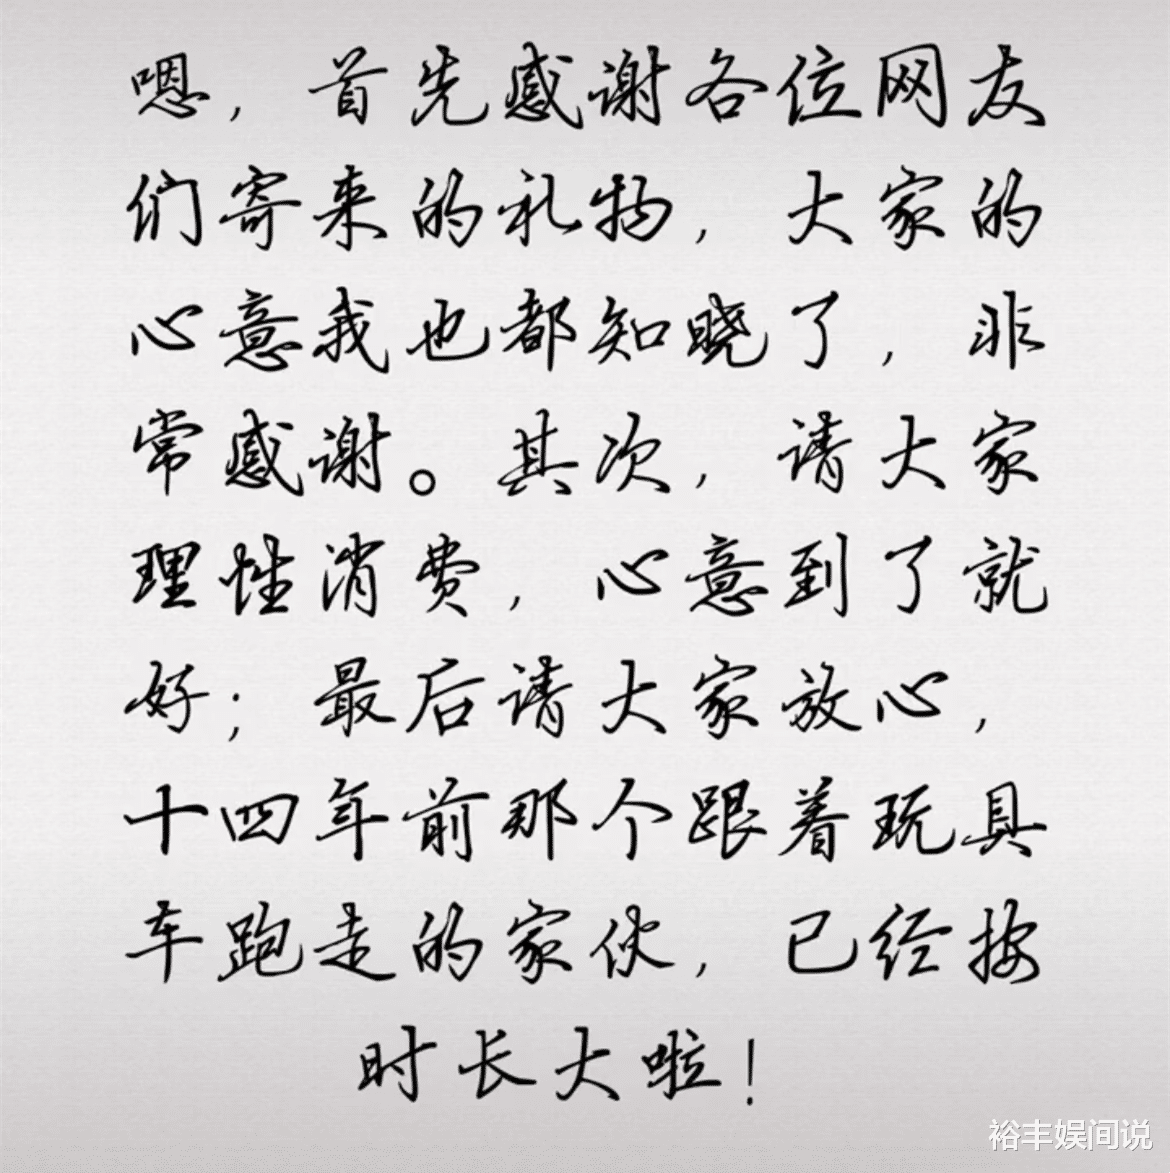 嗯，首先感谢各位网友
们寄来的礼物，大家的
心意我也都知晓了，非
常感谢。其次，请大家
理性消费，心意到了就
好；最后请大家放心，
十四年前那个跟着玩具
车跑走的家伙，已经按
时长大啦！
裕丰娱间说